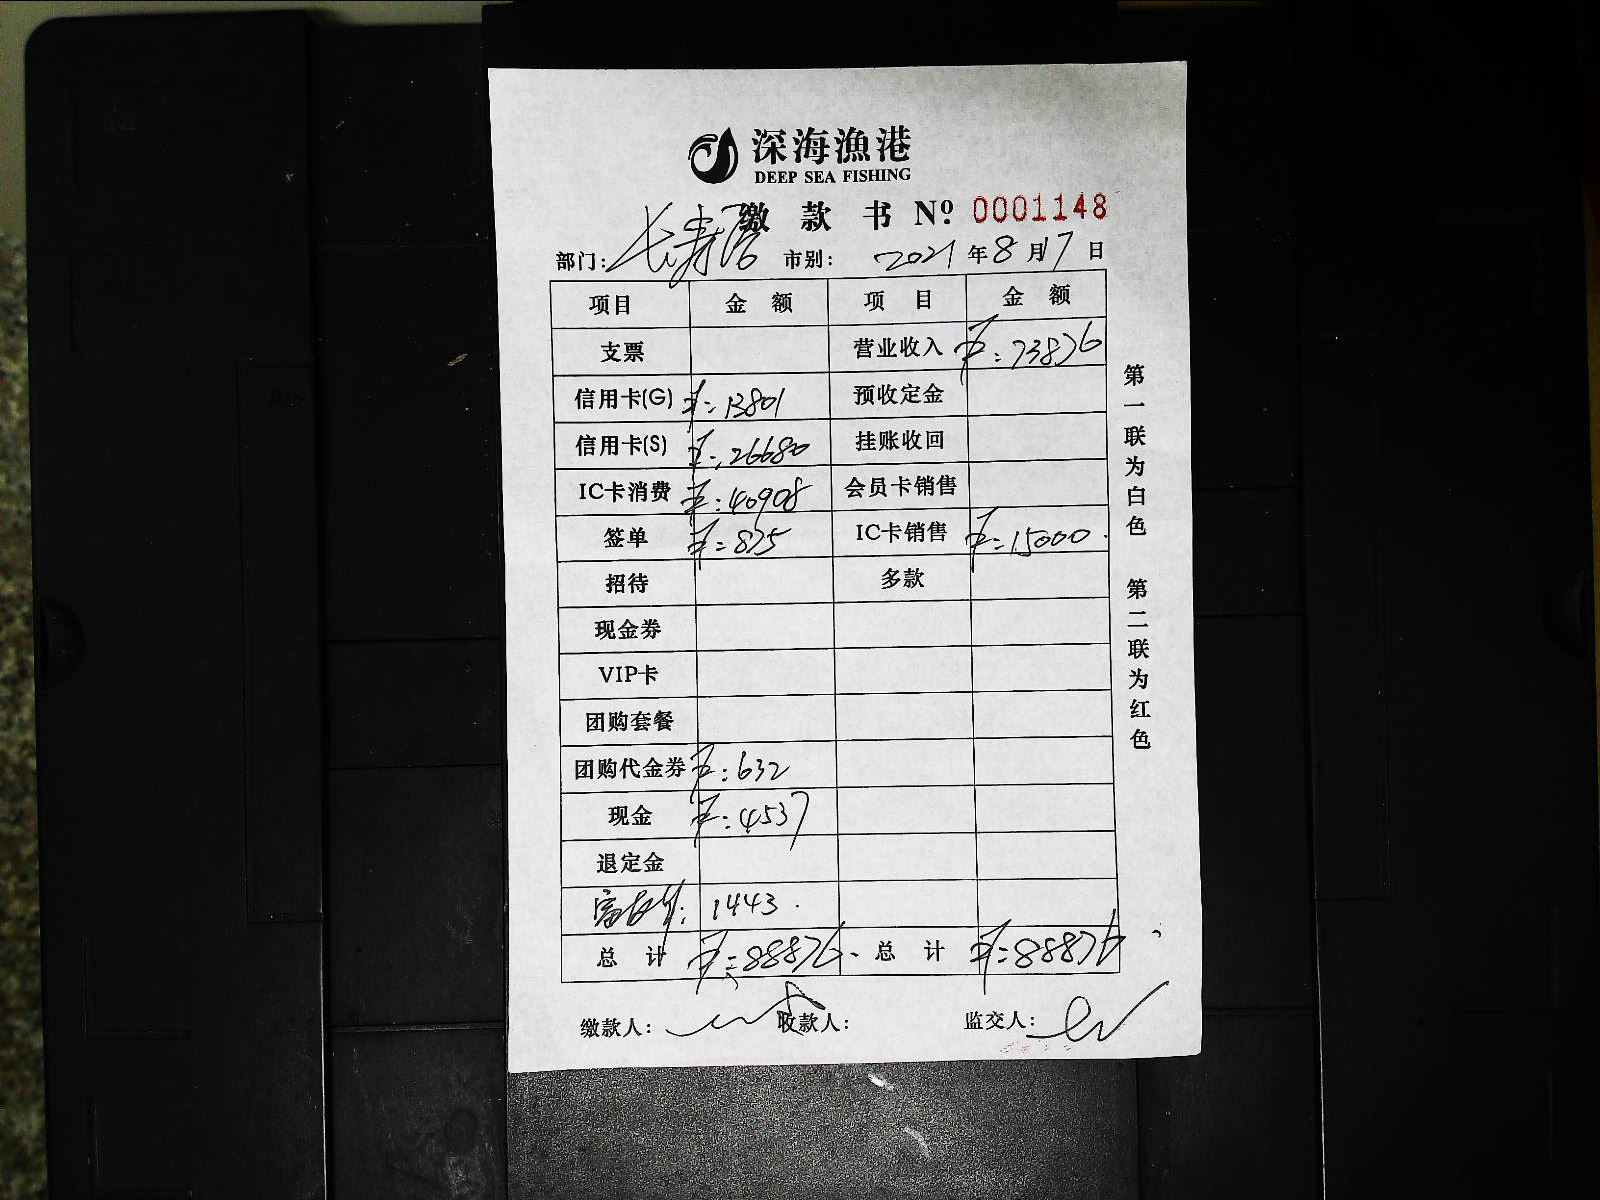 深海漁港
DEEP SEA FISHING
缴款书 Nº 0001148
部门: 长寿店 市别: 2021年8月17日
项目 金额 项目 金额
支票 营业收入 ¥:73876
信用卡(G) ¥:13801 预收定金
信用卡(S) ¥:26680 挂账收回
IC卡消费 ¥:40908 会员卡销售
签单 ¥:875 IC卡销售 ¥:15000.
招待 多款
现金券
VIP卡
团购套餐
团购代金券 ¥:632
现金 ¥:4537
退定金
: 1443.
总计 ¥:88876. 总计 ¥:88876
缴款人: 收款人: 监交人:
第一联为白色 第二联为红色